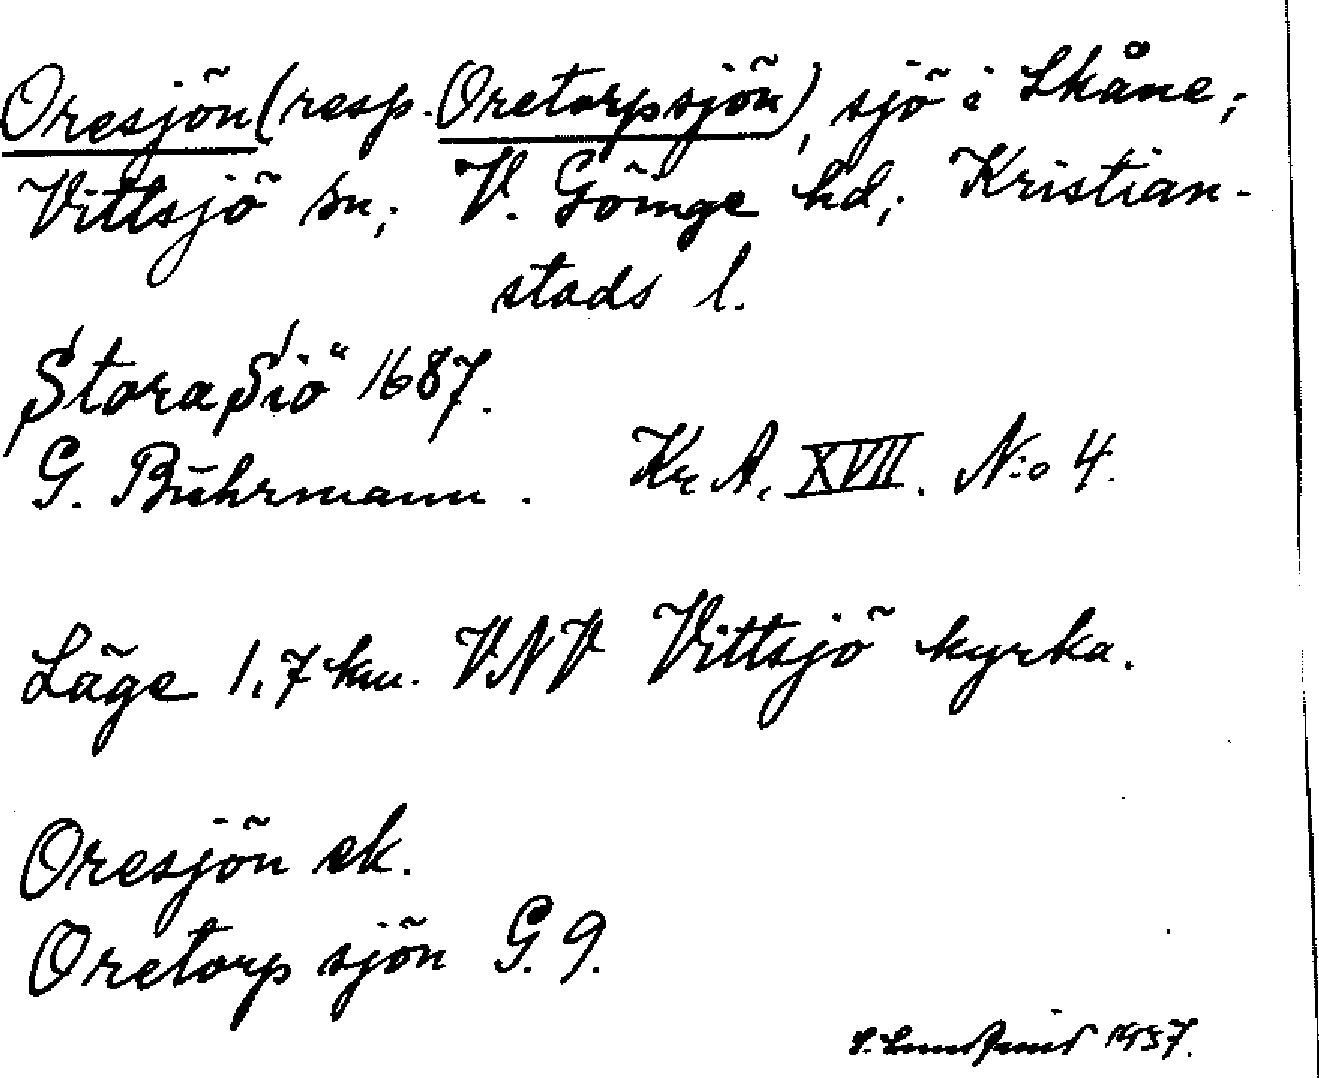 Oresjön (resp. Oretorpsjön), sjö i Skåne;
Vittsjö sn; V. Göinge hd; Kristian-
stads l.
Stora Siö 1687.
G. Buhrmann. Kr. A. XVII. N:o 4.
Läge 1,7 km. VNV Vittsjö kyrka.
Oresjön ek.
Oretorp sjön G. 9.
1937.